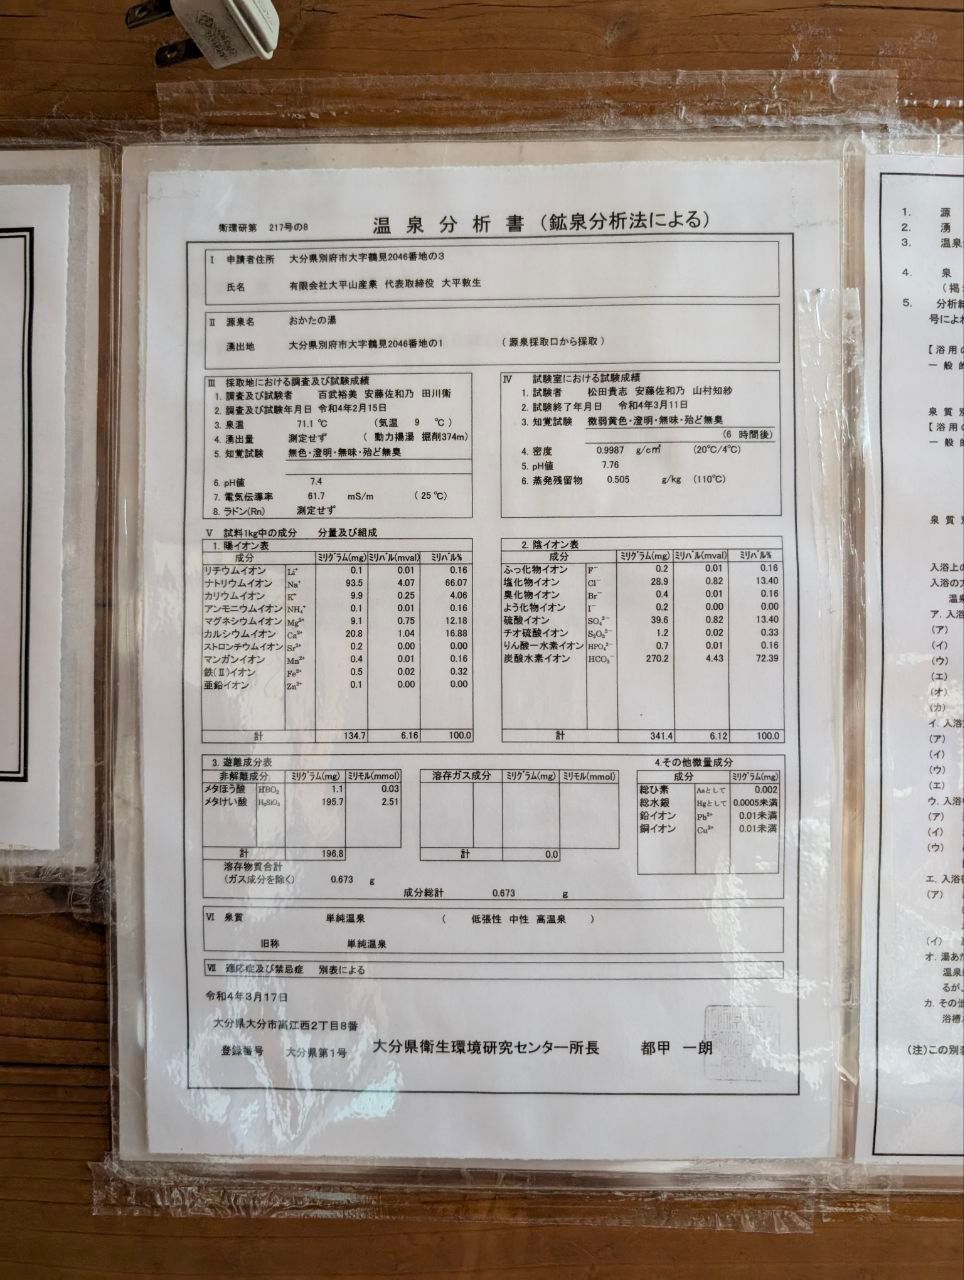 衛環研第 217号の8 温泉分析書(鉱泉分析法による)
Ⅰ 申請者住所 大分県別府市大字鶴見2046番地の3
氏名 有限会社大平山産業 代表取締役 大平敦生
Ⅱ 源泉名 おかたの湯
湧出地 大分県別府市大字鶴見2046番地の1 (源泉採取口から採取)
Ⅲ 採取地における調査及び試験成績
1. 調査及び試験者 百武裕美 安藤佐和乃 田川衛
2. 調査及び試験年月日 令和4年2月15日
3. 泉温 71.1 ℃ (気温 9 ℃)
4. 湧出量 測定せず (動力揚湯 掘削374m)
5. 知覚試験 無色・澄明・無味・殆ど無臭
6. pH値 7.4
7. 電気伝導率 61.7 mS/m (25℃)
8. ラドン(Rn) 測定せず
Ⅳ 試験室における試験成績
1. 試験者 松田貴志 安藤佐和乃 山村知紗
2. 試験終了年月日 令和4年3月11日
3. 知覚試験 微弱黄色・澄明・無味・殆ど無臭
(6 時間後)
4. 密度 0.9987 g/cm³ (20℃/4℃)
5. pH値 7.76
6. 蒸発残留物 0.505 g/kg (110℃)
Ⅴ 試料1kg中の成分 分量及び組成
1. 陽イオン表
成分 ミリグラム(mg) ミリバル(mval) ミリバル%
リチウムイオン Li⁺ 0.1 0.01 0.16
ナトリウムイオン Na⁺ 93.5 4.07 66.07
カリウムイオン K⁺ 9.9 0.25 4.06
アンモニウムイオン NH₄⁺ 0.1 0.01 0.16
マグネシウムイオン Mg²⁺ 9.1 0.75 12.18
カルシウムイオン Ca²⁺ 20.8 1.04 16.88
ストロンチウムイオン Sr²⁺ 0.2 0.00 0.00
マンガンイオン Mn²⁺ 0.4 0.01 0.16
鉄(Ⅱ)イオン Fe²⁺ 0.5 0.02 0.32
亜鉛イオン Zn²⁺ 0.1 0.00 0.00
計 134.7 6.16 100.0
2. 陰イオン表
成分 ミリグラム(mg) ミリバル(mval) ミリバル%
ふっ化物イオン F⁻ 0.2 0.01 0.16
塩化物イオン Cl⁻ 28.9 0.82 13.40
臭化物イオン Br⁻ 0.4 0.01 0.16
よう化物イオン I⁻ 0.2 0.00 0.00
硫酸イオン SO₄²⁻ 39.6 0.82 13.40
チオ硫酸イオン S₂O₃²⁻ 1.2 0.02 0.33
りん酸一水素イオン HPO₄²⁻ 0.7 0.01 0.16
炭酸水素イオン HCO₃⁻ 270.2 4.43 72.39
計 341.4 6.12 100.0
3. 遊離成分表
非解離成分 ミリグラム(mg) ミリモル(mmol)
メタほう酸 HBO₂ 1.1 0.03
メタけい酸 H₂SiO₃ 195.7 2.51
計 196.8
溶存ガス成分 ミリグラム(mg) ミリモル(mmol)
計 0.0
4.その他微量成分
成分 ミリグラム(mg)
総ひ素 Asとして 0.002
総水銀 Hgとして 0.0005未満
鉛イオン Pb²⁺ 0.01未満
銅イオン Cu²⁺ 0.01未満
溶存物質合計
(ガス成分を除く) 0.673 g
成分総計 0.673 g
Ⅵ 泉質 単純温泉 (低張性 中性 高温泉)
旧称 単純温泉
Ⅶ 適応症及び禁忌症 別表による
令和4年3月17日
大分県大分市高江西2丁目8番
登録番号 大分県第1号 大分県衛生環境研究センター所長 都甲 一朗
1. 源
2. 湧
3. 温泉
4. 泉
(掲
5. 分析
号によ
【浴用の
一般的
泉質別
【浴用の
一般的
泉質別
入浴上の
入浴の方
温泉
ア. 入浴
(ア)
(イ)
(ウ)
(エ)
(オ)
(カ)
イ. 入浴
(ア)
(イ)
(ウ)
(エ)
ウ. 入浴
(ア)
(イ)
(ウ)
エ. 入浴
(ア)
(イ)
オ. 湯あた
温泉
るが、
カ. その他
浴槽
(注)この別表